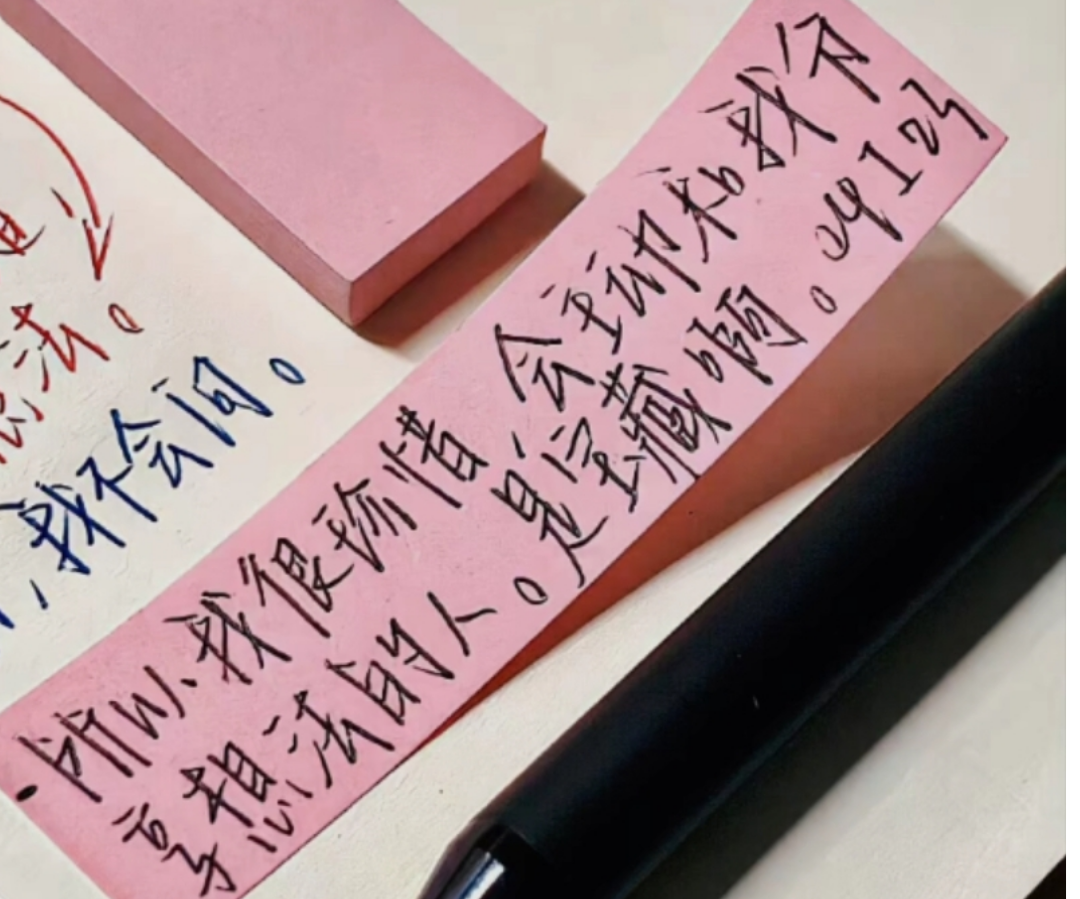 法。
，我不会问。
·所以我很珍惜 会主动和我分
享想法的人。是宝藏啊。